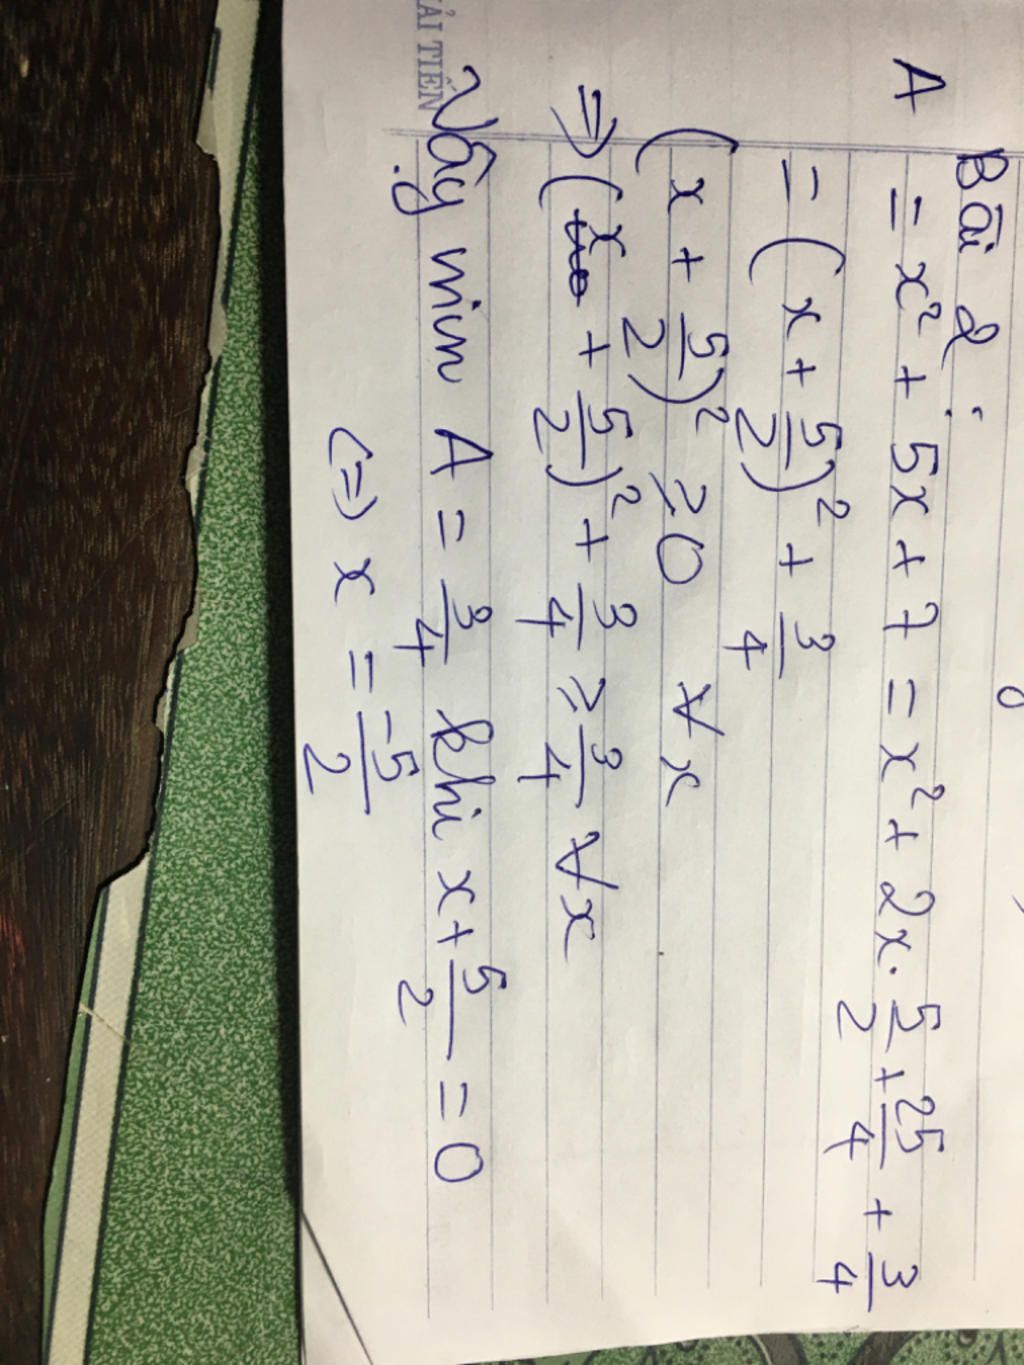 Bài 2:
A = x² + 5x + 7 = x² + 2x . 5/2 + 25/4 + 3/4
= (x + 5/2)² + 3/4
(x + 5/2)² ≥ 0 ∀x
=> (x + 5/2)² + 3/4 ≥ 3/4 ∀x
Vậy min A = 3/4 khi x + 5/2 = 0
<=> x = -5/2
ẢI TIẾN